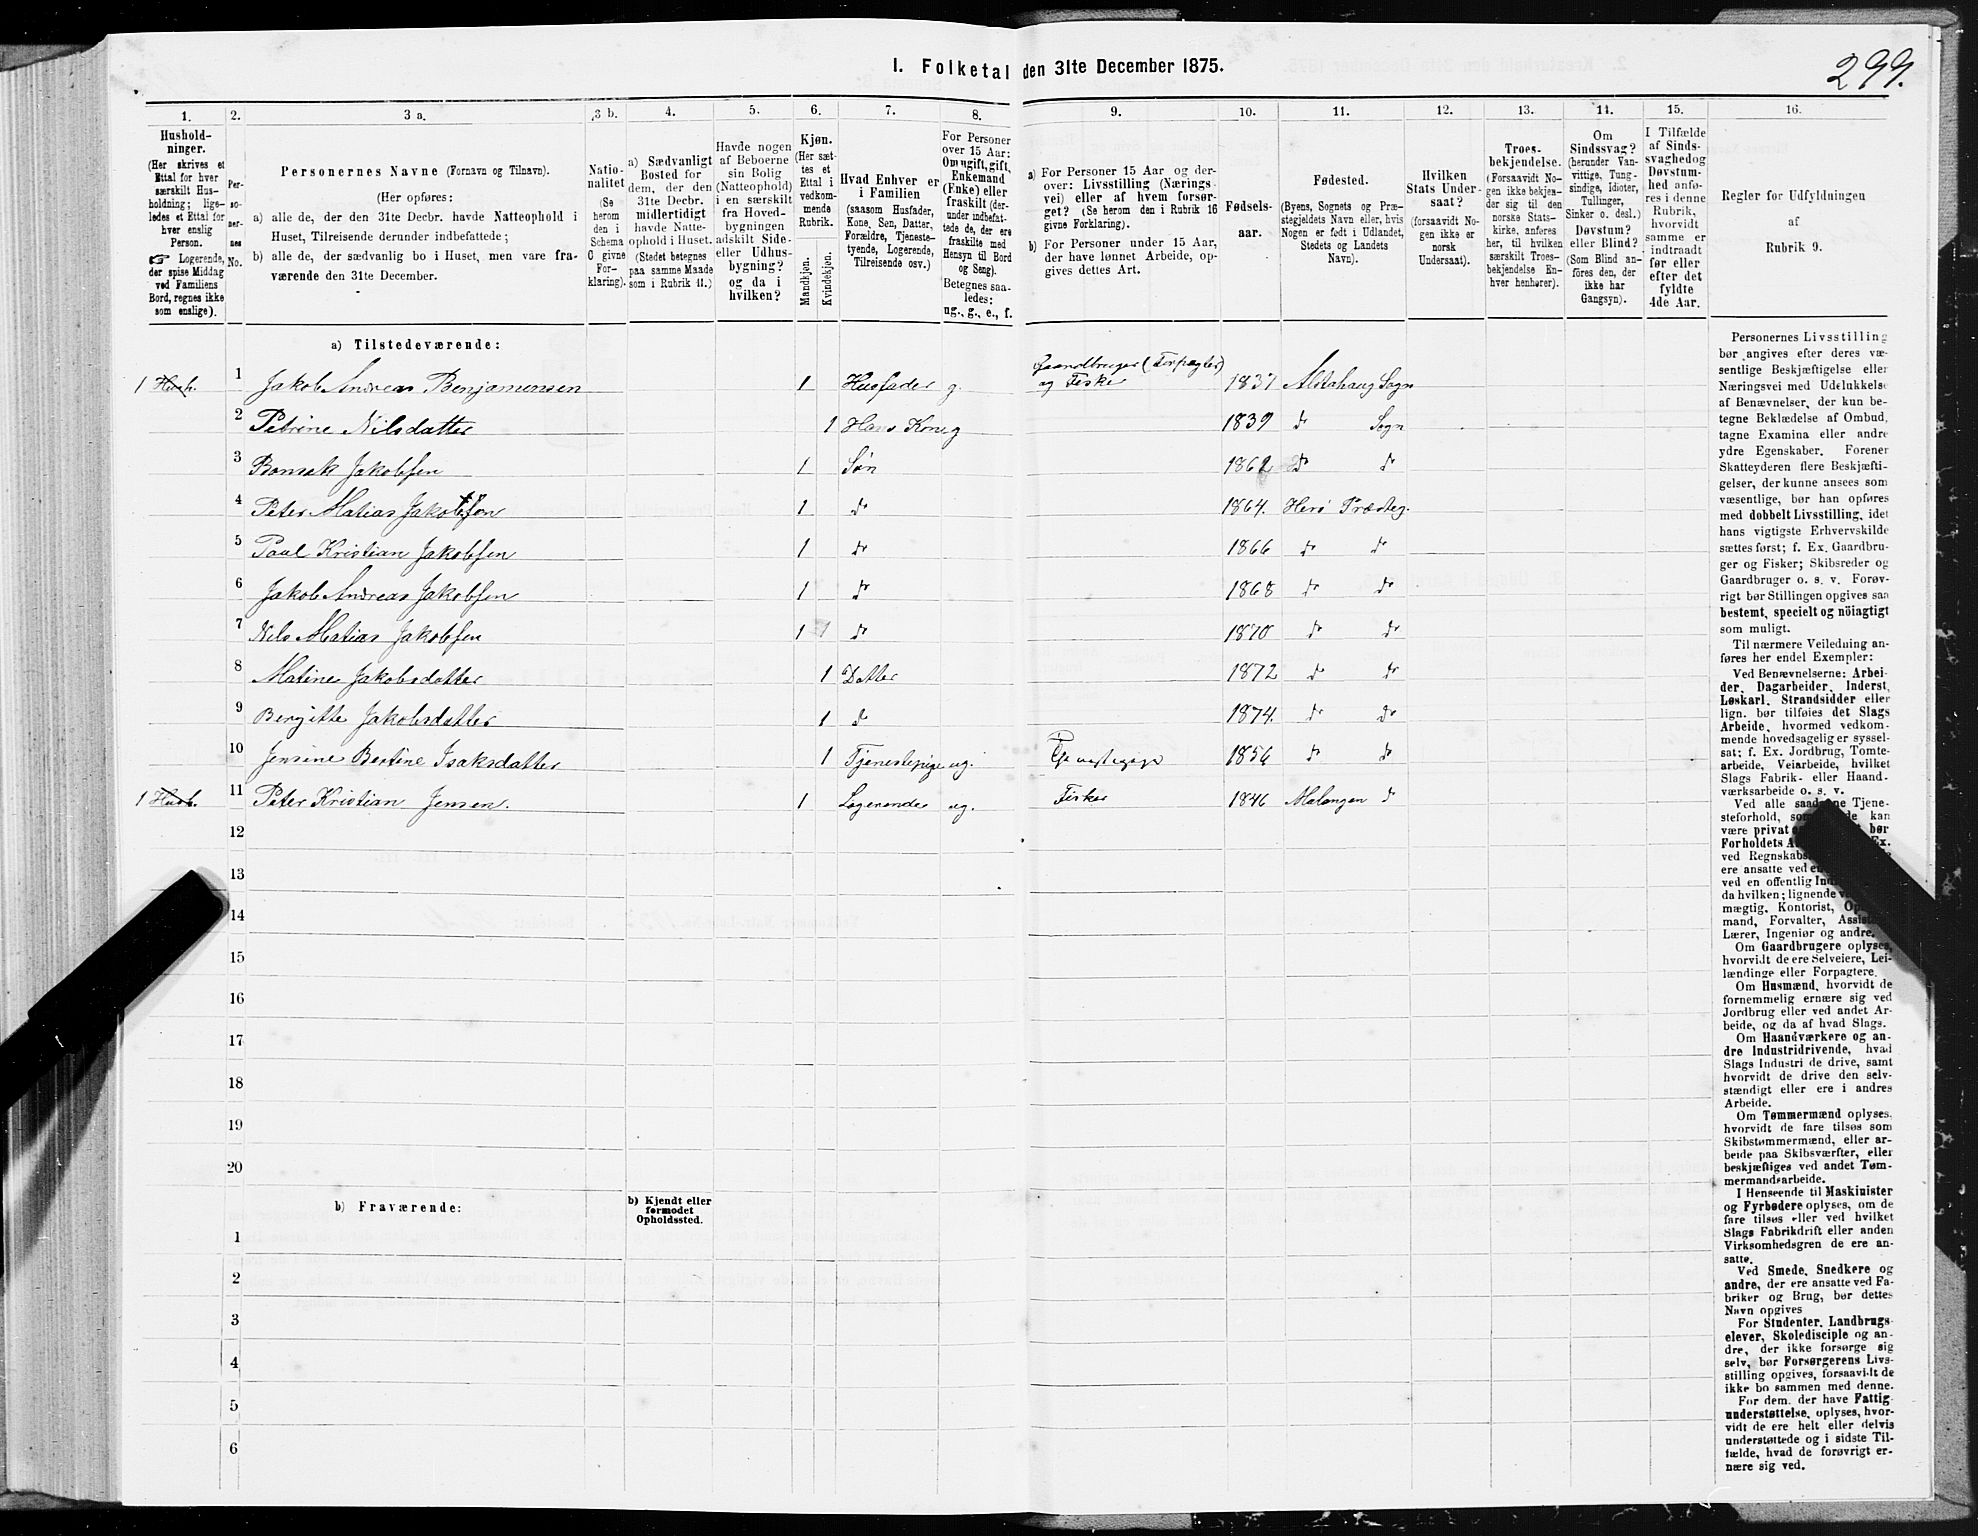 299.
I. Folketal den 31te December 1875.
1.
Hushold-
ninger.
(Her skrives et
Ettal for hver
særskilt Hus-
holdning; lige-
ledes et Ettal for
hver enslig
Person.
☞ Logerende,
der spise Middag
ved Familiens
Bord, regnes ikke
som enslige).
2.
Per-
so-
ner-
nes
No.
3 a.
Personernes Navne (Fornavn og Tilnavn).
(Her opføres:
a) alle de, der den 31te Decbr. havde Natteophold i
Huset, Tilreisende derunder indbefattede;
b) alle de, der sædvanlig bo i Huset, men vare fra-
værende den 31te December.
3 b.
Natio-
nalitet
(Se
herom
den i
Schema
C givne
For-
klaring).
4.
a) Sædvanligt
Bosted for
dem, der den
31te Decbr.
midlertidigt
havde Natte-
ophold i Huset.
(Stedet betegnes
paa samme Maade
som i Rubrik 11.)
5.
Havde nogen
af Beboerne
sin Bolig
(Natteophold)
i en særskilt
fra Hoved-
bygningen
adskilt Side-
eller Udhus-
bygning?
og da i
hvilken?
6.
Kjøn.
(Her sæt-
tes et
Ettal i
vedkom-
mende
Rubrik.
Mandkjøn.
Kvindekjøn.
7.
Hvad Enhver er
i Familien
(saasom Husfader,
Kone, Søn, Datter,
Forældre, Tjeneste-
tyende, Logerende,
Tilreisende osv.)
8.
For Personer
over 15 Aar:
Om ugift, gift,
Enkemand
(Enke) eller
fraskilt (der-
under indbefat-
tede de, der ere
fraskilte med
Hensyn til Bord
og Seng).
Betegnes saa-
ledes:
ug., g., e., f.
9.
a) For Personer 15 Aar og der-
over: Livsstilling (Nærings-
vei) eller af hvem forsør-
get? (Se herom den i Rubrik 16
givne Forklaring).
b) For Personer under 15 Aar,
der have lønnet Arbeide, op-
gives dettes Art.
10.
Fødsels-
aar.
11.
Fødested.
(Byens, Sognets og Præ-
stegjeldets Navn eller, hvis
Nogen er født i Udlandet,
Stedets og Landets
Navn).
12.
Hvilken
Stats Under-
saat?
(forsaavidt No-
gen ikke er
norsk
Undersaat).
13.
Troes-
bekjendelse.
(Forsaavidt No-
gen ikke bekjen-
der sig til den
norske Stats-
kirke, anføres
her, til hvilken
særskilt Troes-
bekjendelse En-
hver henhører).
14.
Om
Sindssvag?
(herunder Van-
vittige, Tung-
sindige, Idioter,
Tullinger,
Sinker o. desl.)
Døvstum?
eller Blind?
(Som Blind an-
føres den, der
ikke har
Gangsyn).
15.
I Tilfælde
af Sinds-
svaghed og
Døvstum-
hed anfø-
res i denne
Rubrik,
hvorvidt
samme er
indtraadt
før eller
efter det
fyldte
4de Aar.
16.
Regler for Udfyldningen
af
Rubrik 9.
a) Tilstedeværende:
1 Husb. 1 Jakob Andreas Benjaminsen 1 Husfader g. Gaardbruger (Forpagter) og Fisker 1837 Alstahaug Sogn
2 Petrine Nilsdatter 1 Hans Kone g 1839 do Sogn
3 Bonsak Jakobsen 1 Søn 1862 do do
4 Peter Matias Jakobsen 1 do 1864. Herø Præsteg.
5 Paul Kristian Jakobsen 1 do 1866 do do
6 Jakob Andreas Jakobsen 1 do 1868 do do
7 Nils Matias Jakobsen 1 do 1870 do do
8 Matine Jakobsdatter 1 Datter 1872 do do
9 Bergitte Jakobsdatter 1 do 1874. do do
10 Jensine Bertine Isaksdatter 1 Tjenestepige ug. 1856 do do
1 Husb. 11 Peter Kristian Jensen. 1 Logerende ug. Fisker 1846 Malangen do
12
13
14
15
16
17
18
19
20
b) Fraværende:
b) Kjendt eller
formodet
Opholdssted.
1
2
3
4
5
6
Personernes Livsstilling
bør angives efter deres væ-
sentlige Beskjæftigelse eller
Næringsvei med Udelukkelse
af Benævnelser, der kun be-
tegne Beklædelse af Ombud,
tagne Examina eller andre
ydre Egenskaber. Forener
Skatteyderen flere Beskjæfti-
gelser, der kunne ansees som
væsentlige, bør han opføres
med dobbelt Livsstilling, idet
hans vigtigste Erhvervskilde
sættes først; f. Ex. Gaardbru-
ger og Fisker; Skibsreder og
Gaardbruger o. s. v. Forøv-
rigt bør Stillingen opgives saa
bestemt, specielt og nöiagtigt
som muligt.
Til nærmere Veiledning an-
føres her endel Exempler:
Ved Benævnelserne: Arbei-
der, Dagarbeider, Inderst,
Løskarl, Strandsidder eller
lign. bør tilføies det Slags
Arbeide, hvormed vedkom-
mende hovedsagelig er syssel-
sat; f. Ex. Jordbrug, Tomte-
arbeide, Veiarbeide, hvilket
Slags Fabrik- eller Haand-
værksarbeide o. s. v.
Ved alle saadanne Tjene-
steforhold, kan
være privat bør
Forholdets Ex.
ved Regnskabs
ere ansatte ved
ved en offentlig
da hvilken; lignende
mægtig, Kontorist,
mand, Forvalter,
Lærer, Ingeniør og andre.
Om Gaardbrugere oplyses,
hvorvidt de ere Selveiere, Lei-
lændinge eller Forpagtere.
Om Husmænd, hvorvidt de
fornemmelig ernære sig ved
Jordbrug eller ved andet Ar-
beide, og da af hvad Slags.
Om Haandværkere og an-
dre Industridrivende, hvad
Slags Industri de drive, samt
hvorvidt de drive den selv-
stændigt eller ere i andres
Arbeide.
Om Tømmermænd oplyses,
hvorvidt de fare tilsøs som
Skibstømmermænd, eller ar-
beide paa Skibsværfter, eller
beskjæftiges ved andet Tøm-
mermandsarbeide.
I Henseende til Maskinister
og Fyrbødere oplyses, om de
fare tilsøs eller ved hvilket
Slags Fabrikdrift eller anden
Virksomhedsgren de ere an-
satte.
Ved Smede, Snedkere og
andre, der ere ansatte ved Fa-
briker og Brug, bør dettes
Navn opgives
For Studenter, Landbrugs-
elever, Skoledisciple og an-
dre, der ikke forsørge sig
selv, bør Forsørgerens Livs-
stilling opgives, forsaavidt de
ikke bo sammen med denne.
For dem, der have Fattig-
understøttelse, oplyses, hvor-
vidt de ere helt eller delvis
understøttede og i sidste Til-
fælde, hvad de forøvrigt er-
nære sig ved.